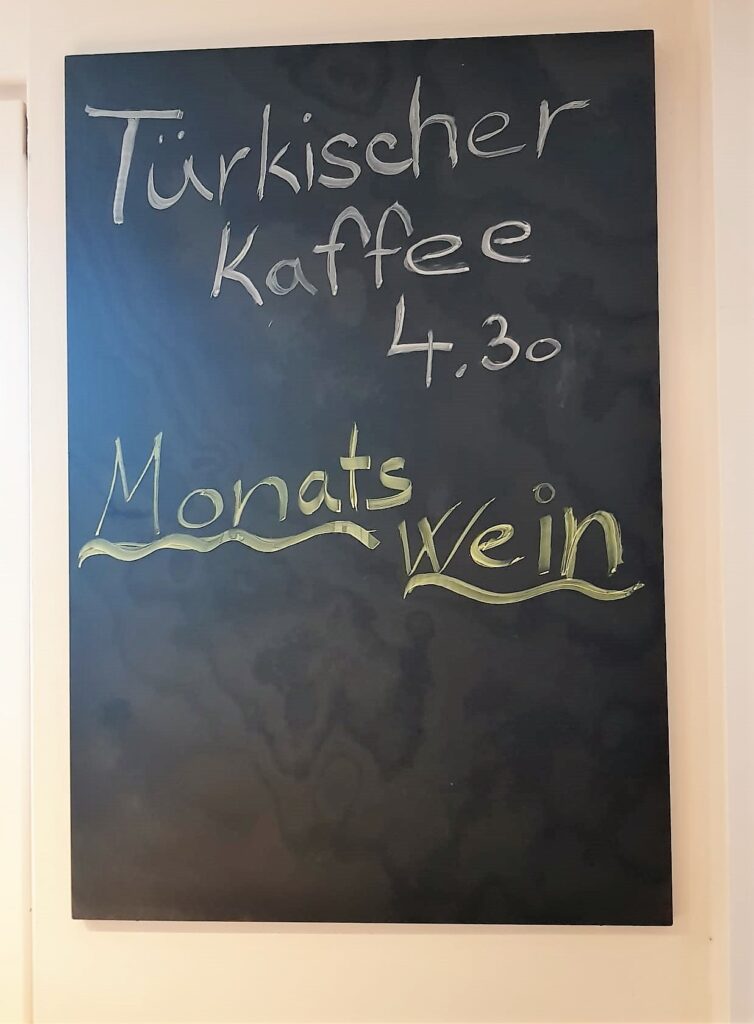 Türkischer
Kaffee
4.30
Monats
Wein